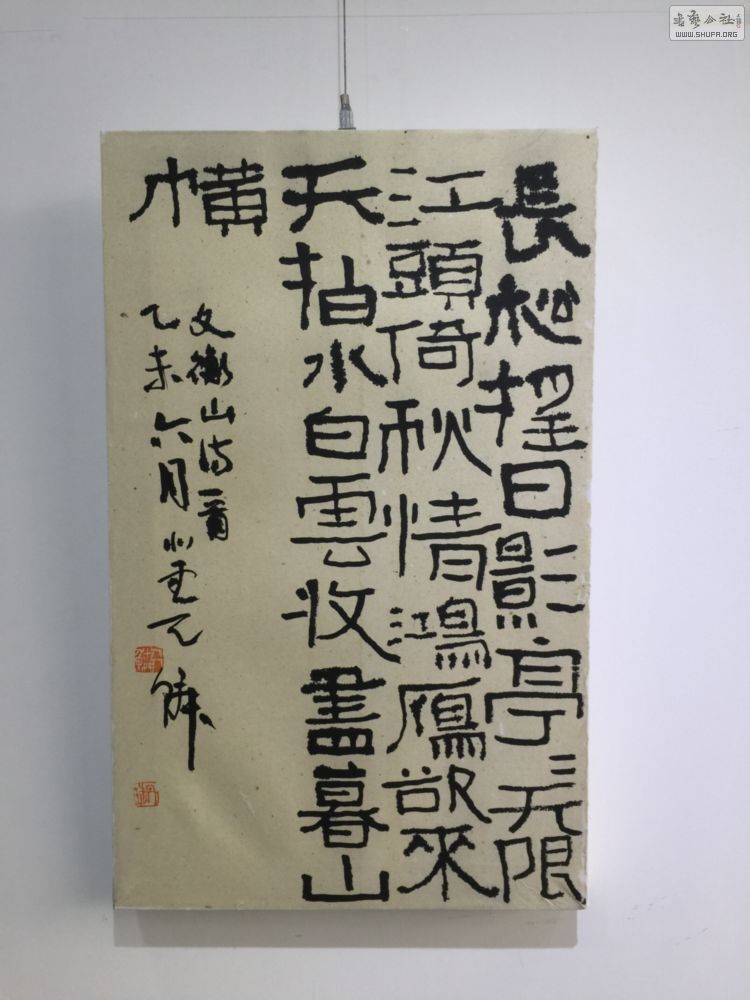 長松搖日影亭〻无限
江頭倚秋情鴻鴈欲來
天拍水白雲收盡暮山
橫
巾
文衡山诗一首
乙未六月
書藝公社
WWW.SHUFA.ORG